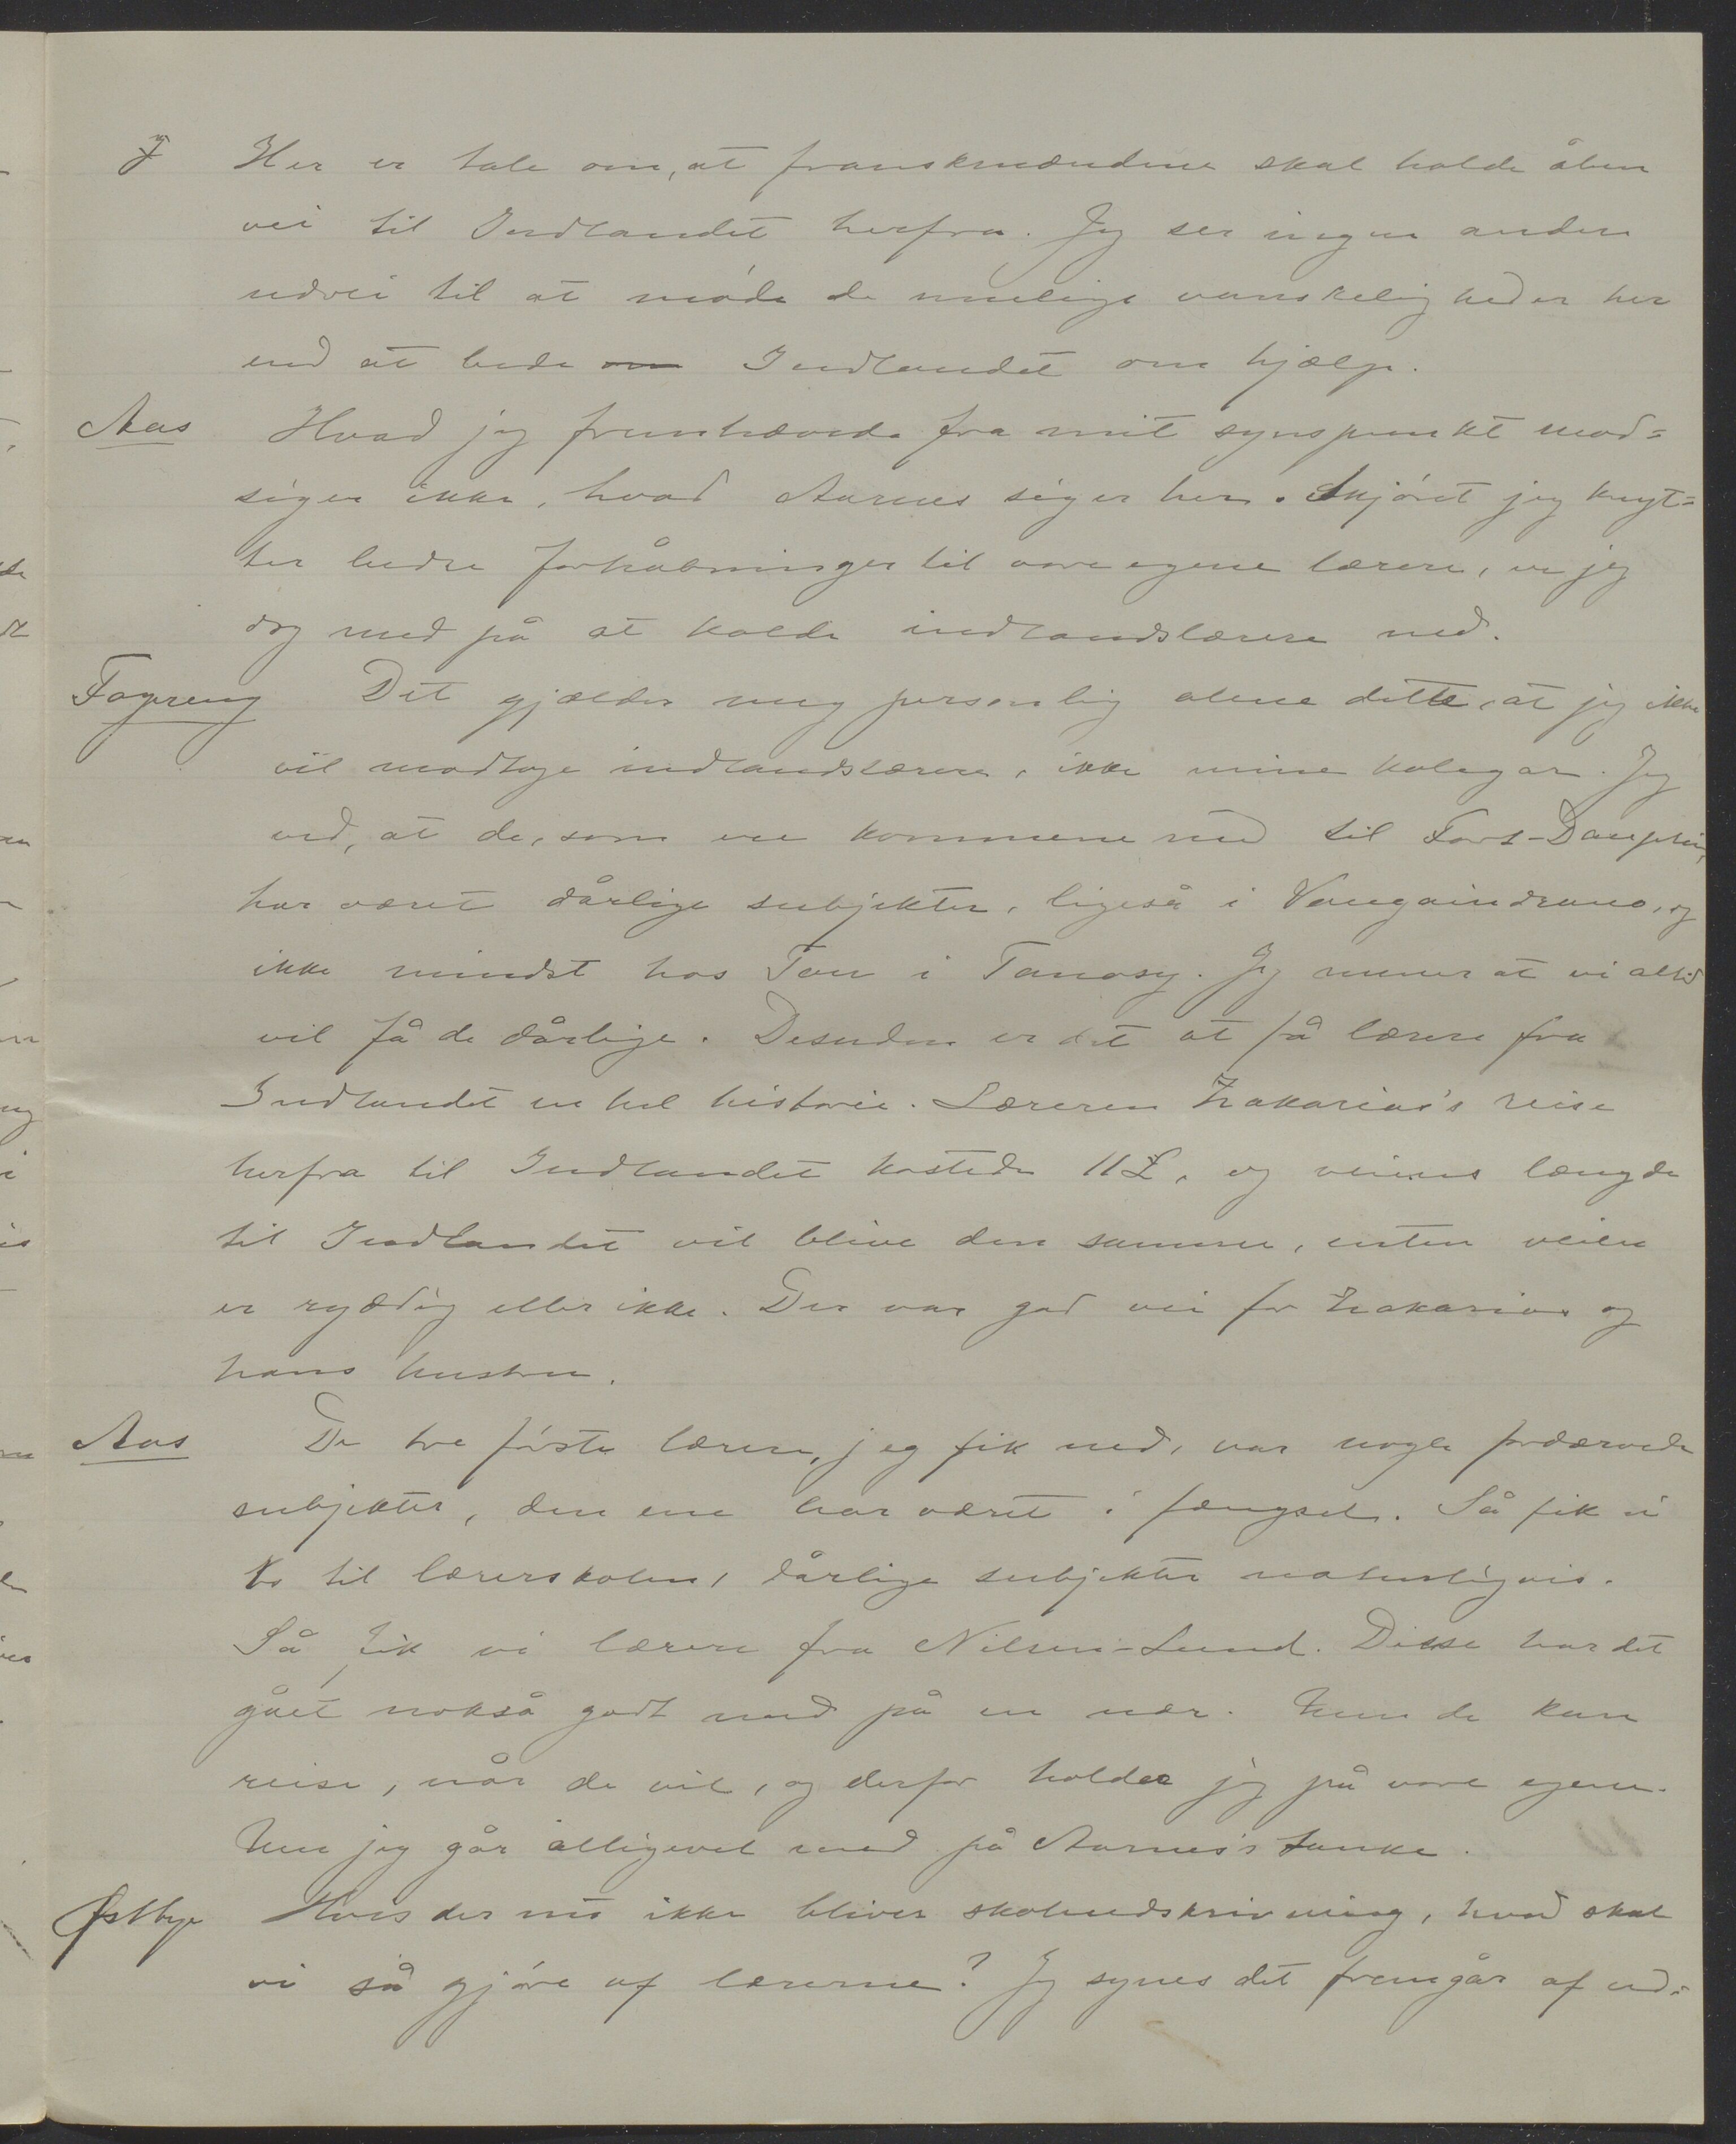 Her er tale om, at franskmændene skal holde åben
vei til Indlandet herfra. Jeg ser ingen anden
udvei til at møde de mulige vanskeligheder her
end at bede om Indlandet om hjælp.
Aas Hvad jeg fremhævede fra mit synspunkt mod=
siger ikke, hvad Aarnes siger her. Skjønt jeg knyt=
ter bedre forhåbninger til vore egene lærere, er jeg
dog med på at kalde indlandslærere ned.
Fagereng Det gjælder mig personlig alene dette, at jeg ikke
vil modtage indlandslærere, ikke mine kolegar. Jeg
ved, at de, som ere kommene ned til Fort-Dauphin,
har været dårlige subjekter, ligeså i Vangaindrano, og
ikke mindst hos Tou i Tanosy. Jeg mener at vi altid
vil få de dårlige. Desuden er det at få lærere fra
Indlandet en hel historie. Læreren Zakarias's reise
herfra til Indlandet kostede 11£, og veiens længde
til Indlandet vil blive den samme, enten veien
er ryddig eller ikke. Der var god vei for Zakarias og
hans hustru.
Aas De tre første lærere, jeg fik ned, var nogle fordærvede
subjekter, den ene har været i fængsel. Så fik vi
to til lærerskolen, dårlige subjekter naturligvis.
Så fik vi lærere fra Nilsen-Lund. Disse har det
gået nokså godt med på en nær. Men de kan
reise, når de vil, og derfor holder jeg på vore egene.
Men jeg går alligevel med på Aarnes's tanke.
Østbye Hvis der nu ikke bliver skoleudskrivning, hvad skal
vi så gjøre af lærerne? Jeg synes det fremgår af ud=